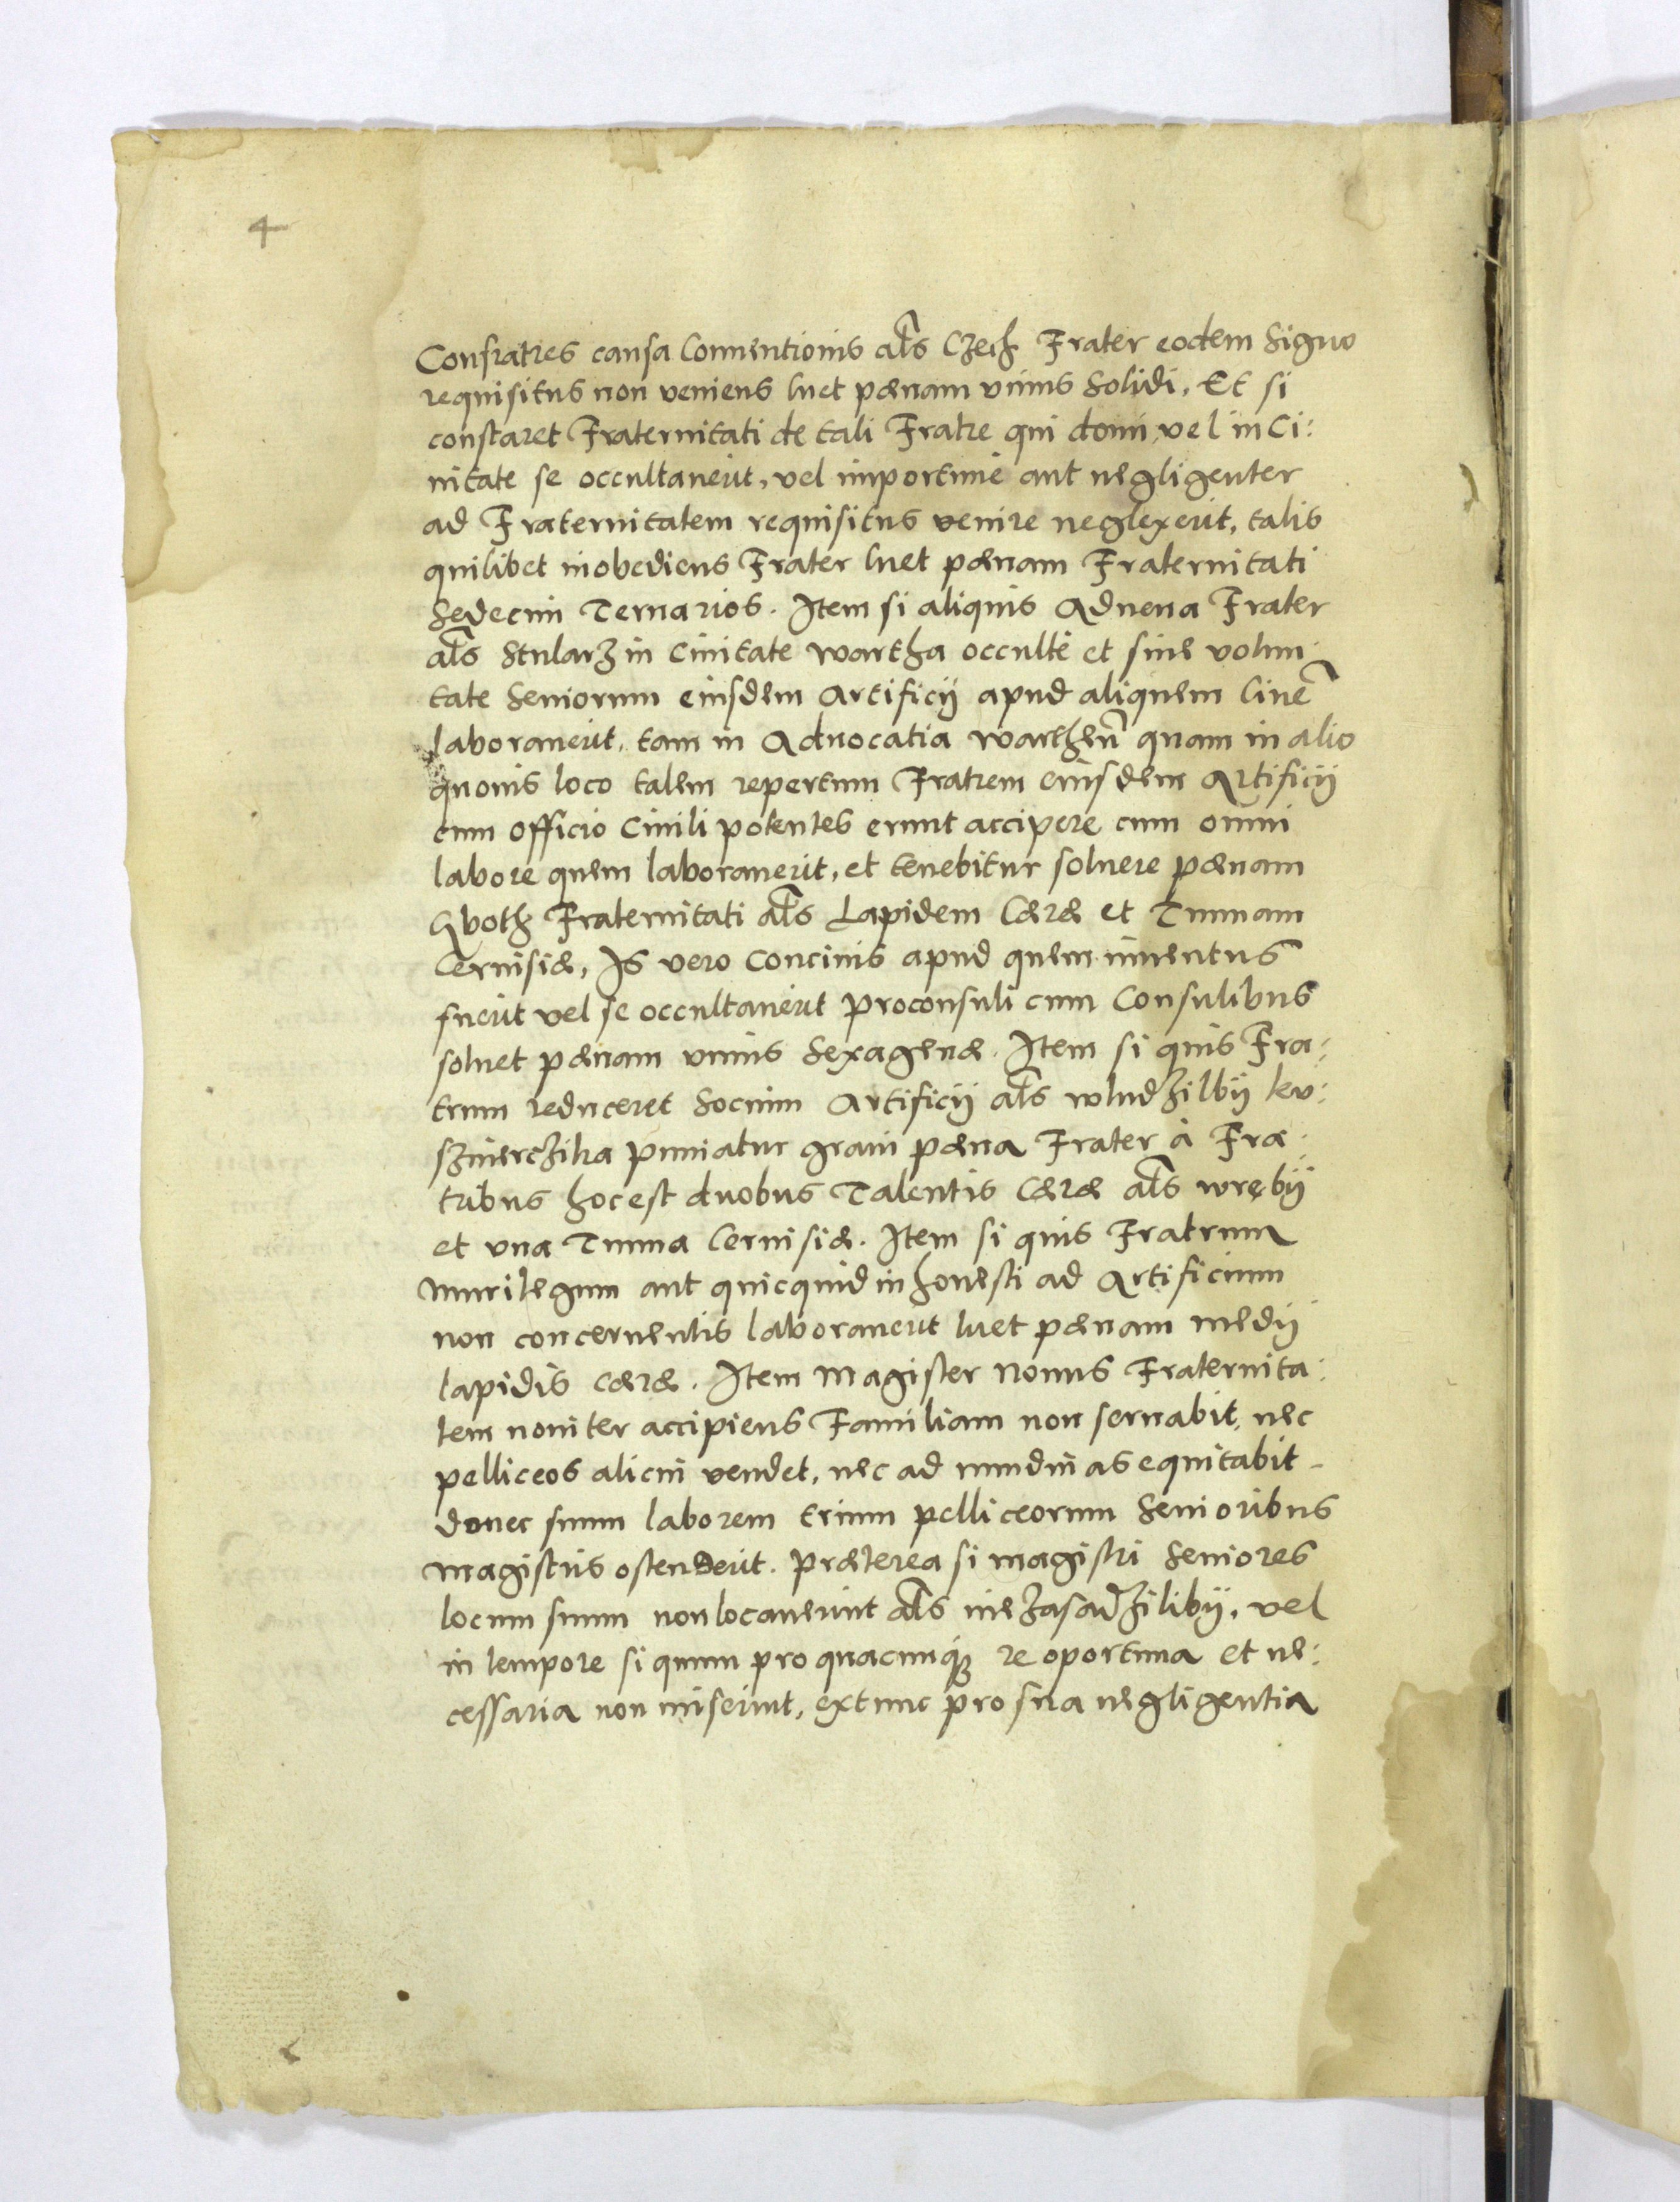 4
Confratres causa Conuentionis als Czech Frater eodem Signo
requisitus non veniens luet pœnam vnius Solidi. Et si
constaret Fraternitati de tali Fratre qui domi, vel in Ci:
uitate se occultauerit, vel importunè aut negligenter
ad Fraternitatem requisitus venire neglexerit, talis
quilibet inobediens Frater luet pœnam Fraternitati
Sedecim Ternarios. Item si aliquis Aduena Frater
als Stularz in Ciuitate Wartha occultè et sine volun:
tate Seniorum eiusdem Artificÿ apud aliquem Ciuē
laborauerit, tam in Aduocatia Warthen̄ quam in alio
quouis loco talem repertum Fratrem eiusdem Artificÿ
cum officio Ciuili potentes erunt accipere cum omni
labore quem laborauerit, et tenebitur soluere pœnam
Qvoth Fraternitati als Lapidem Cæræ et Tunnam
Ceruisiæ, Is vero Conciuis apud quem inuentus
fuerit vel se occultauerit Proconsuli cum Consulibus
soluet pœnam vnius Sexagenæ. Item si quis Fra:
trum reduceret Socium Artificÿ als wludzilbÿ kv:
sznierczika puniatur graui pœna Frater à Fra:
tribus hoc est duobus Talentis Cæræ als wrębÿ
et vna Tunna Ceruisiæ. Item si quis Fratrum
murilegum aut quicquid inhonesti ad Artificium
non concernentis laborauerit luet pœnam medÿ
lapidis cæræ. Item Magister Nouus Fraternita:
tem nouiter accipiens Familiam non seruabit, nec
pelliceos alicui vendet, nec ad nundinas equitabit
donec suum laborem trium pelliceorum Senioribus
Magistris ostenderit. Præterea si magistri Seniores
locum suum non locauerint als niezasadzilibÿ, vel
in tempore si quum pro quacunq3 re oportuna et ne:
cessaria non miserint, extunc pro sua negligentia